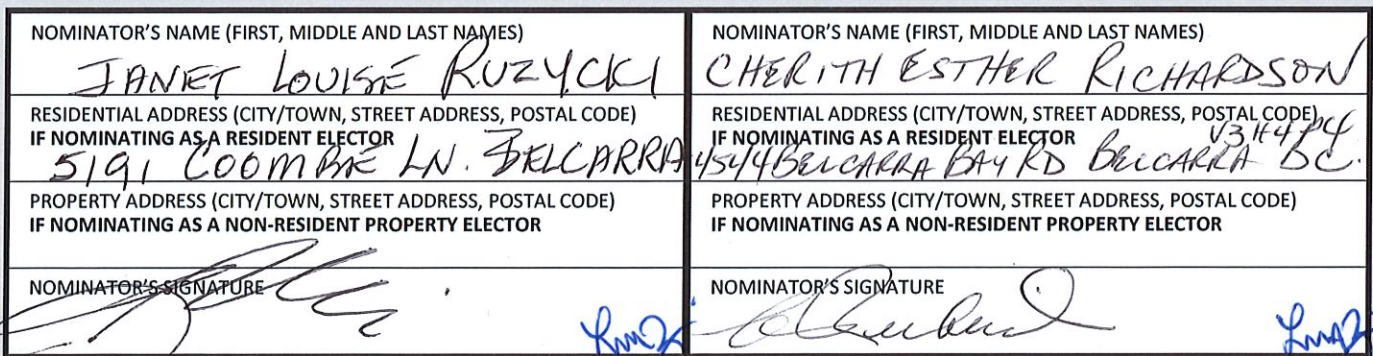 NOMINATOR'S NAME (FIRST, MIDDLE AND LAST NAMES)
JANET LOUISE RUZYCKI
RESIDENTIAL ADDRESS (CITY/TOWN, STREET ADDRESS, POSTAL CODE)
IF NOMINATING AS A RESIDENT ELECTOR
5191 COOMBE LN. BELCARRA
PROPERTY ADDRESS (CITY/TOWN, STREET ADDRESS, POSTAL CODE)
IF NOMINATING AS A NON-RESIDENT PROPERTY ELECTOR
NOMINATOR'S SIGNATURE
NOMINATOR'S NAME (FIRST, MIDDLE AND LAST NAMES)
CHERITH ESTHER RICHARDSON
RESIDENTIAL ADDRESS (CITY/TOWN, STREET ADDRESS, POSTAL CODE)
IF NOMINATING AS A RESIDENT ELECTOR
V3H4P4
4544 BELCARRA BAY RD BELCARRA BC.
PROPERTY ADDRESS (CITY/TOWN, STREET ADDRESS, POSTAL CODE)
IF NOMINATING AS A NON-RESIDENT PROPERTY ELECTOR
NOMINATOR'S SIGNATURE